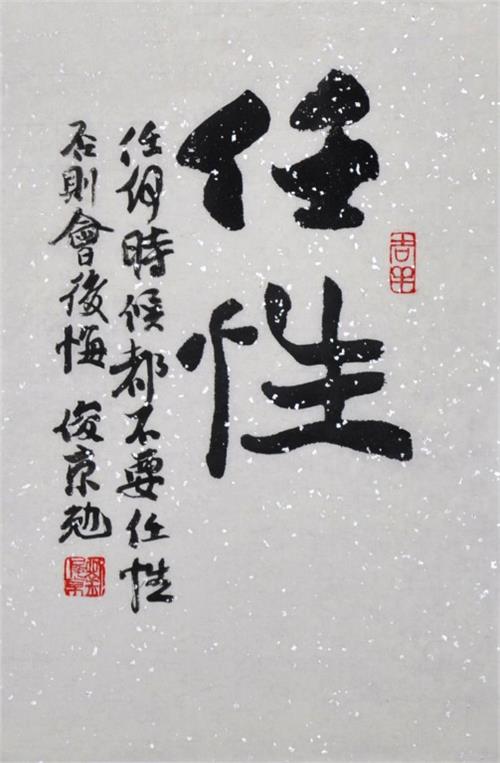 任性
任何時候都不要任性
否則會後悔 俊京勉